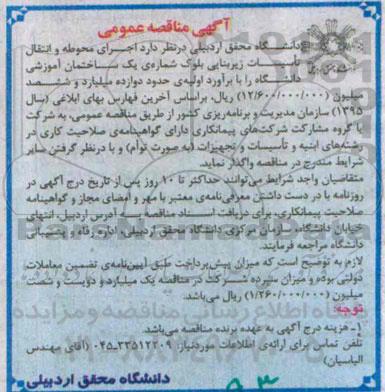 آگهی مناقصه عمومی
دانشگاه محقق اردبیلی درنظر دارد اجرای محوطه و انتقال
تأسیسات زیربنایی بلوک شماره‌ی یک ساختمان آموزشی
دانشگاه را با برآورد اولیه‌ی حدود دوازده میلیارد و ششصد
میلیون (۱۲/۶۰۰/۰۰۰/۰۰۰) ریال، براساس آخرین فهارس بهای ابلاغی (سال
۱۳۹۵) سازمان مدیریت و برنامه‌ریزی کشور از طریق مناقصه عمومی، به شرکت
یا گروه مشارکت شرکت‌های پیمانکاری دارای گواهینامه‌ی صلاحیت کاری در
رشته‌های ابنیه و تأسیسات و تجهیزات (به صورت توأم) و با درنظر گرفتن سایر
شرایط مندرج در مناقصه واگذار نماید.
متقاضیان واجد شرایط می‌توانند حداکثر تا ۱۰ روز پس از تاریخ درج آگهی در
روزنامه با در دست داشتن معرفی‌نامه‌ی معتبر با مهر و امضای مجاز و گواهینامه
صلاحیت پیمانکاری، برای دریافت اسناد مناقصه به آدرس اردبیل، انتهای
خیابان دانشگاه، سازمان مرکزی دانشگاه محقق اردبیلی، اداره رفاه و پشتیبانی
دانشگاه مراجعه فرمایند.
لازم به توضیح است که میزان پیش‌پرداخت طبق آیین‌نامه‌ی تضمین معاملات
دولتی بوده و میزان سپرده شرکت در مناقصه یک میلیارد و دویست و شصت
میلیون (۱/۲۶۰/۰۰۰/۰۰۰) ریال می‌باشد.
توجه:
۱- هزینه درج آگهی به عهده برنده مناقصه می‌باشد.
تلفن تماس برای ارائه‌ی اطلاعات موردنیاز: ۳۳۵۱۲۲۰۹-۰۴۵ (آقای مهندس
الیاسیان)
دانشگاه محقق اردبیلی